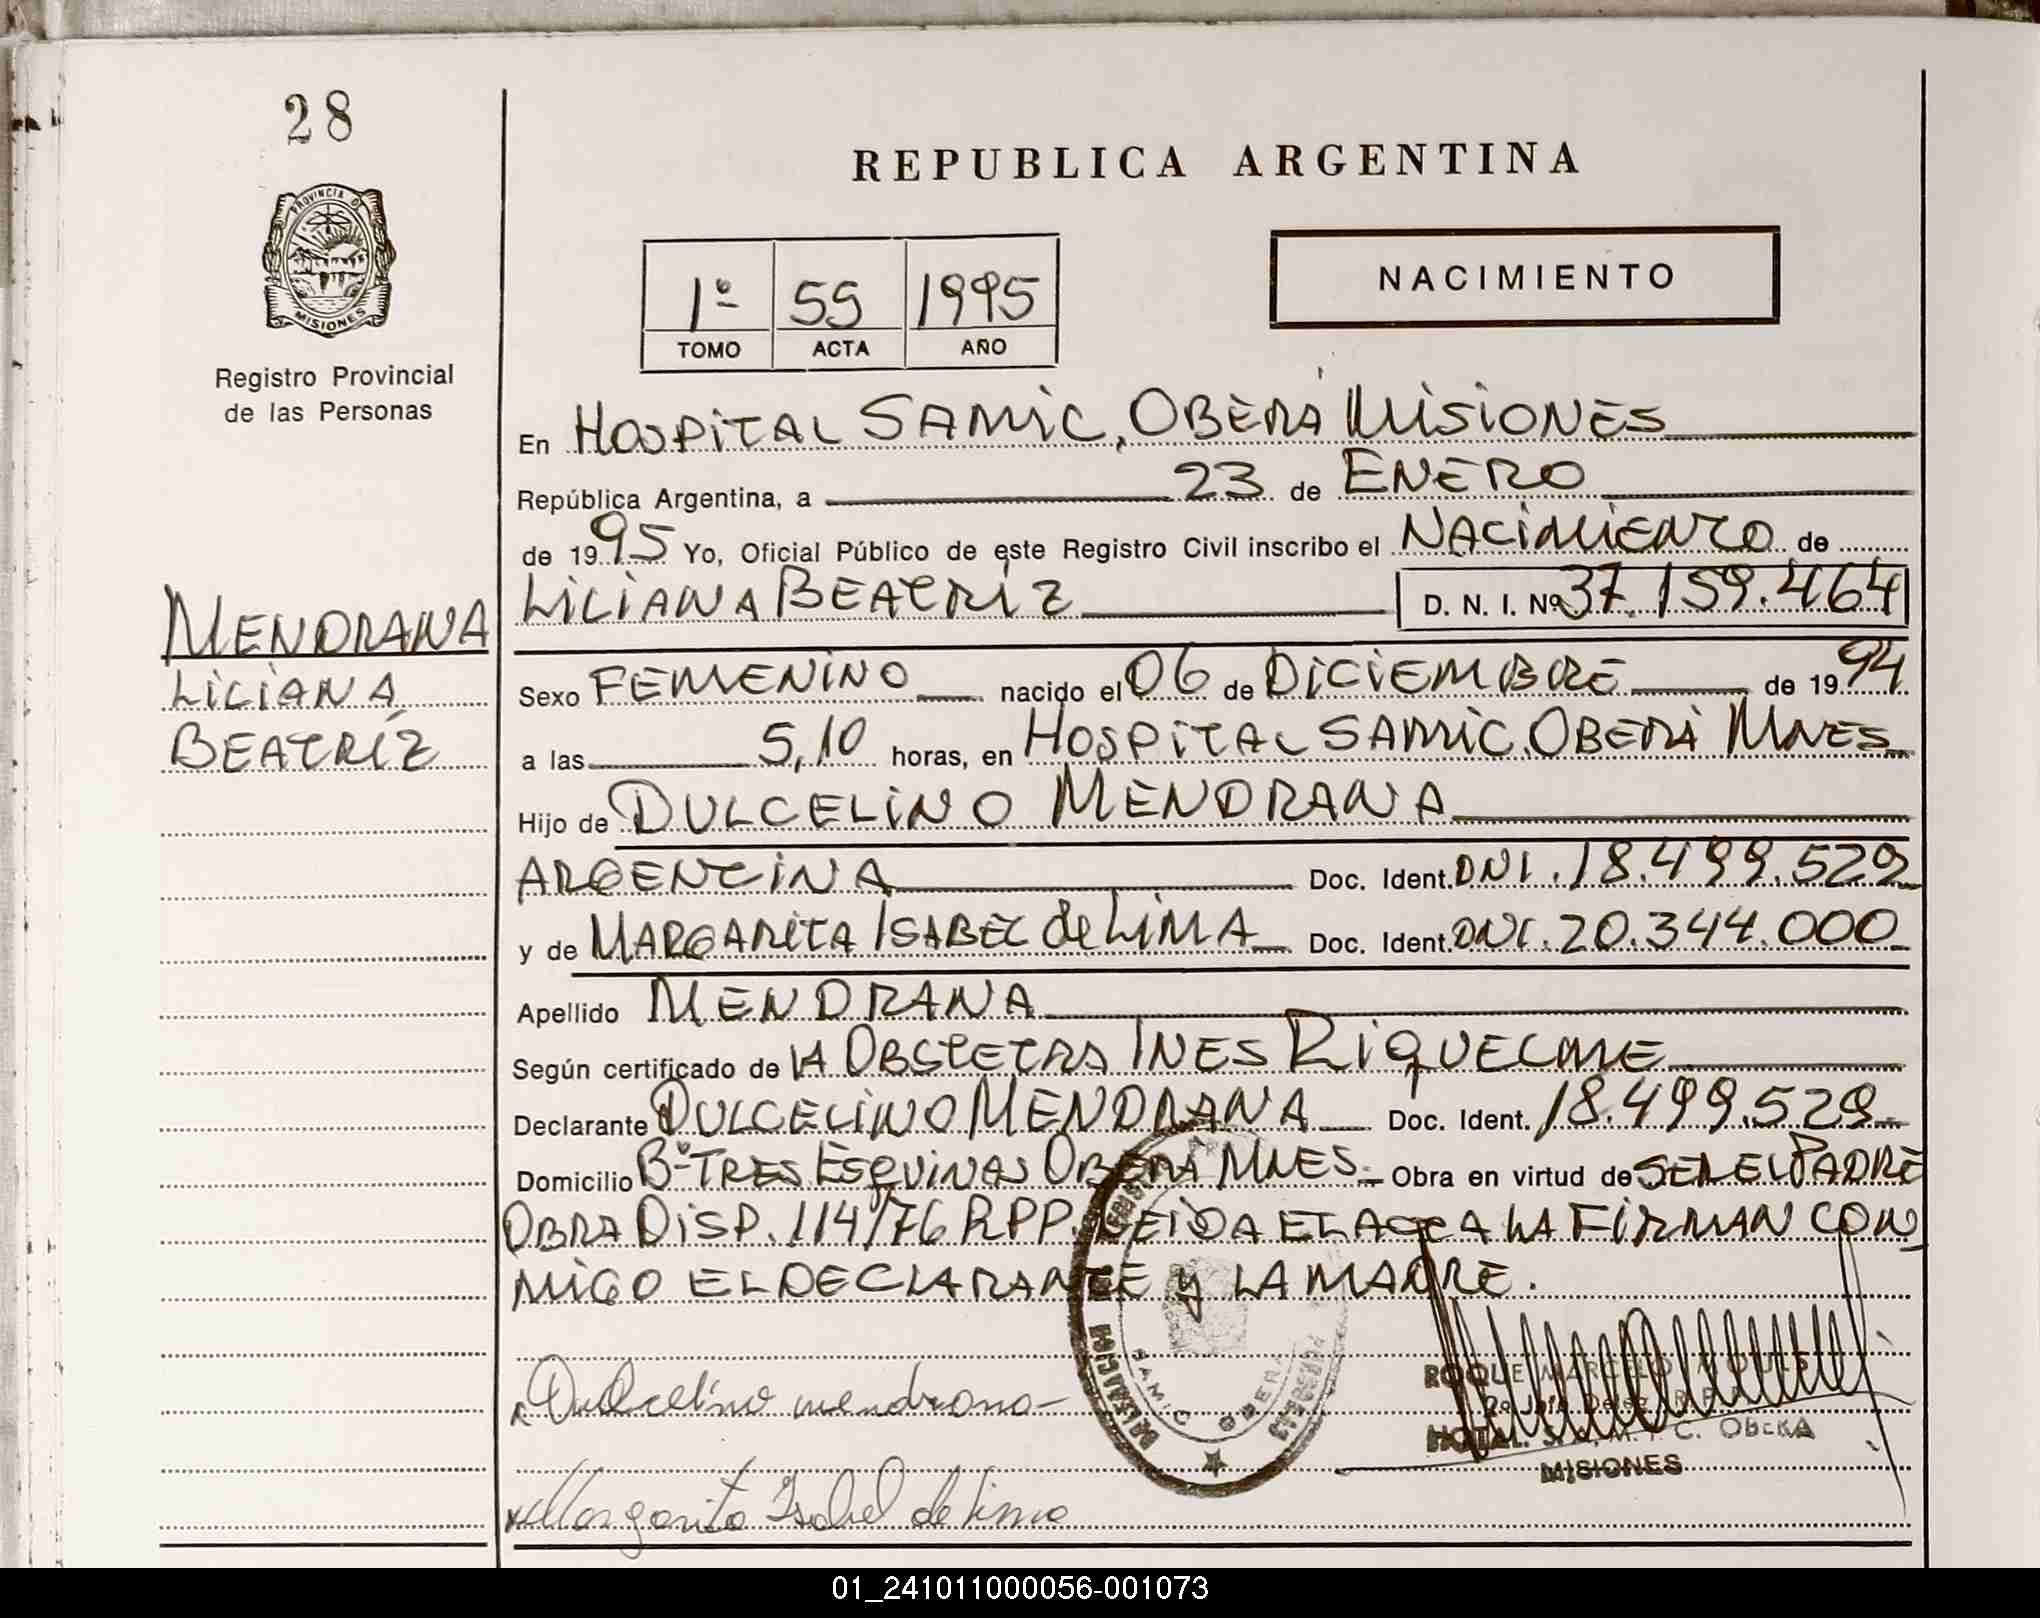 28
REPUBLICA ARGENTINA
PROVINCIA D
MISIONES
Registro Provincial
de las Personas
1º 55 1995
TOMO ACTA AÑO
NACIMIENTO
En HOSPITAL SAMIC, OBERÁ MISIONES
República Argentina, a 23 de ENERO
de 1995 Yo, Oficial Público de este Registro Civil inscribo el NACIMIENTO de
LILIANA BEATRIZ D. N. I. Nº 37.159.464
MENDRANA
LILIANA
BEATRIZ
Sexo FEMENINO nacido el 06 de DICIEMBRE de 1994
a las 5,10 horas, en HOSPITAL SAMIC, OBERÁ MNES
Hijo de DULCELINO MENDRANA
ARGENTINA Doc. Ident. DNI. 18.499.529
y de MARGARITA ISABEL de LIMA Doc. Ident. DNI. 20.344.000
Apellido MENDRANA
Según certificado de LA OBSTETRA INES RIQUELME
Declarante DULCELINO MENDRANA Doc. Ident. 18.499.529
Domicilio Bº TRES ESQUINAS OBERÁ MNES. Obra en virtud de SER EL PADRE
OBRA DISP. 114/76 RPP. LEIDA EL ACTA LA FIRMAN CON
MIGO EL DECLARANTE y LA MADRE.
Dulcelino mendrana
Margarita Isabel de lima
DELEGACION
SAMIC OBERA
ROQUE MARCELO
2º Jefe Deleg. R.P.P.
HOTAL. S.A.M.I.C. OBERA
MISIONES
01_241011000056-001073